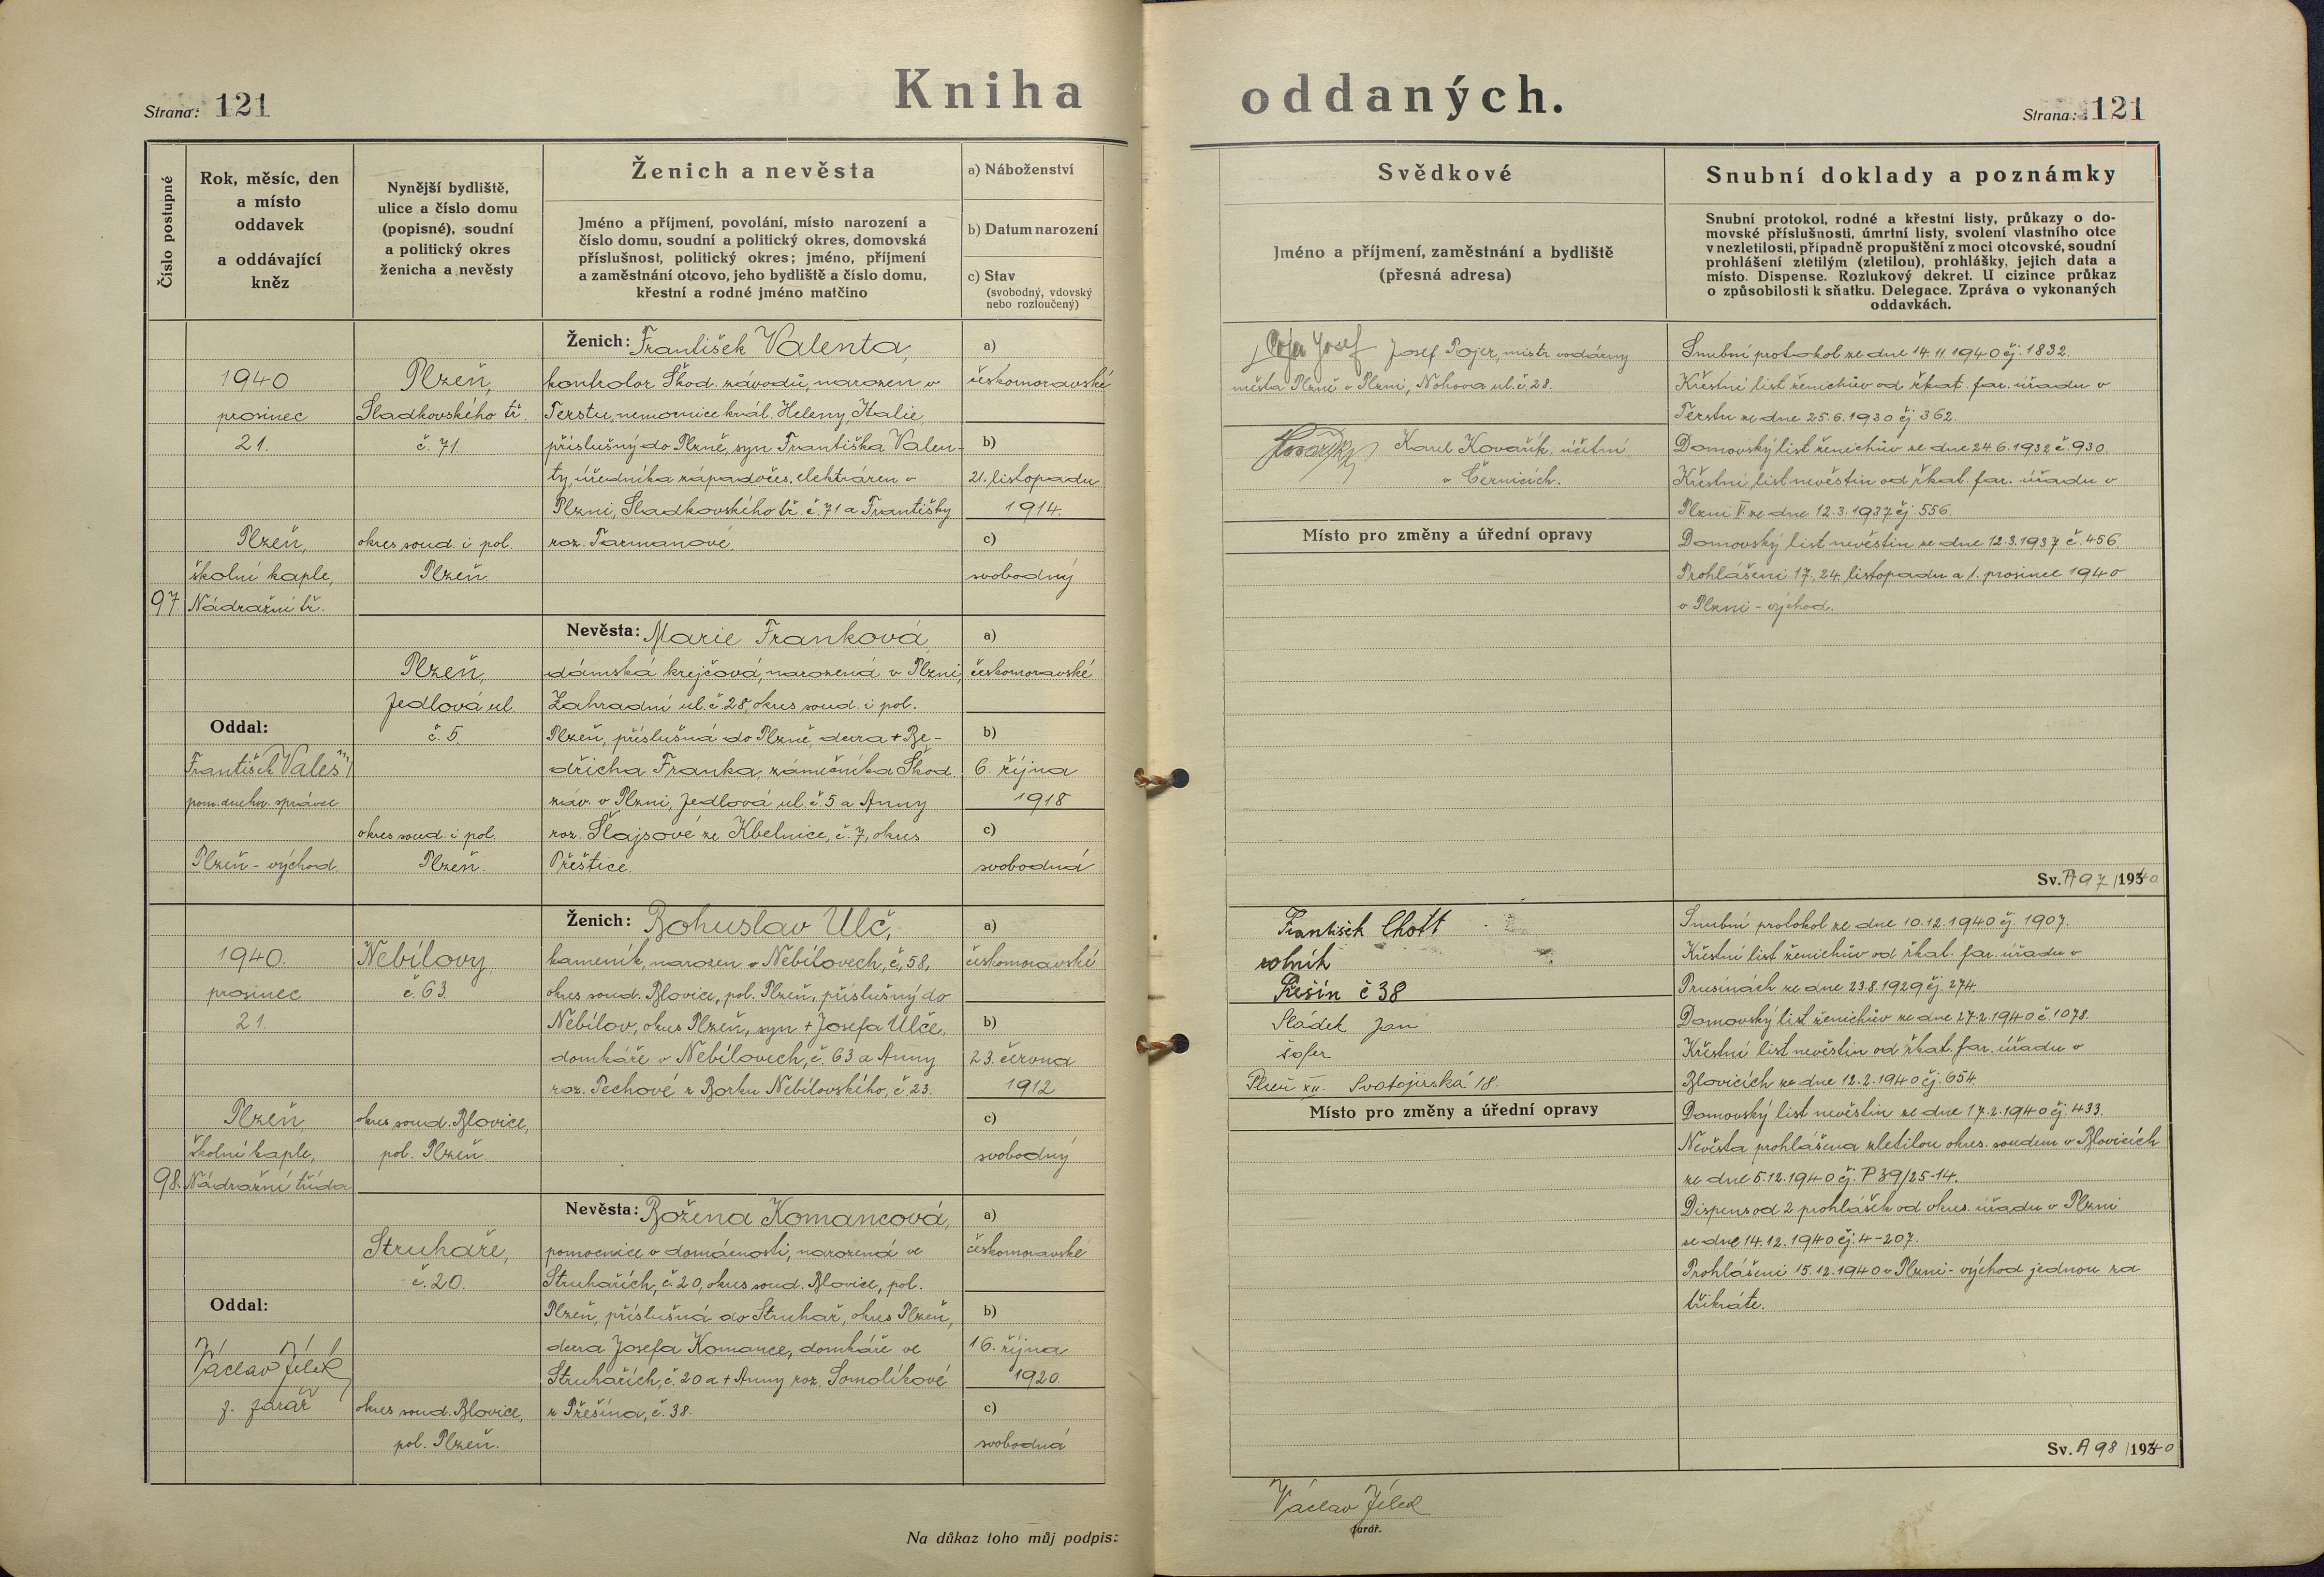 Kniha oddaných.
Strana: 121
Strana: 121
Číslo postupné
Rok, měsíc, den
a místo
oddavek
a oddávající
kněz
Nynější bydliště,
ulice a číslo domu
(popisné), soudní
a politický okres
ženicha a nevěsty
Ženich a nevěsta
Jméno a příjmení, povolání, místo narození a
číslo domu, soudní a politický okres, domovská
příslušnost, politický okres; jméno, příjmení
a zaměstnání otcovo, jeho bydliště a číslo domu,
křestní a rodné jméno matčino
a) Náboženství
b) Datum narození
c) Stav
(svobodný, vdovský
nebo rozloučený)
Svědkové
Jméno a příjmení, zaměstnání a bydliště
(přesná adresa)
Snubní doklady a poznámky
Snubní protokol, rodné a křestní listy, průkazy o do-
movské příslušnosti, úmrtní listy, svolení vlastního otce
v nezletilosti, případně propuštění z moci otcovské, soudní
prohlášení zletilým (zletilou), prohlášky, jejich data a
místo. Dispense. Rozlukový dekret. U cizince průkaz
o způsobilosti k sňatku. Delegace. Zpráva o vykonaných
oddavkách.
97
1940
prosinec
21.
Plzeň,
školní kaple,
Nádražní tř.
Oddal:
František Valeš
pom. duchov. správce
Plzeň - východ
Plzeň,
Sladkovského tř.
č. 71.
okres soud. i pol.
Plzeň.
Plzeň,
Jedlová ul.
č. 5.
okres soud. i pol.
Plzeň.
Ženich: František Valenta,
kontrolor Škod. závodů, narozen v
Terstu, nemocnice král. Heleny, Italie,
příslušný do Plzně, syn Františka Valen-
ty, úředníka západočes. elektráren v
Plzni, Sladkovského tř. č. 71 a Františky
roz. Tarmanové.
Nevěsta: Marie Franková,
dámská krejčová, narozená v Plzni,
Zahradní ul. č. 28, okres soud. i pol.
Plzeň, příslušná do Plzně, dcera + Be-
dřicha Franka, zámečníka Škod.
záv. v Plzni, Jedlová ul. č. 5 a Anny
roz. Šlajsové ze Kbelnice, č. 7, okres
Přeštice.
a)
českomoravské
b)
21. listopadu
1914.
c)
svobodný
a)
českomoravské
b)
6. října
1918
c)
svobodná
Pojer Josef Josef Pojer, mistr vodárny
města Plzně v Plzni, Nohova ul. č. 28.
Kovařík Karel Kovařík, účetní
v Černicích.
Místo pro změny a úřední opravy
Snubní protokol ze dne 14. 11. 1940 čj. 1832.
Křestní list ženichův od řkat. far. úřadu v
Terstu ze dne 25. 6. 1930 čj. 362.
Domovský list ženichův ze dne 24. 6. 1932 č. 930.
Křestní list nevěstin od řkat. far. úřadu v
Plzni V. ze dne 12. 3. 1937 čj. 556.
Domovský list nevěstin ze dne 12. 3. 1937 č. 456.
Prohlášení 17., 24. listopadu a 1. prosince 1940
v Plzni - východ.
Sv. A 97 /1940
98.
1940.
prosinec
21.
Plzeň
školní kaple,
Nádražní třída
Oddal:
Václav Jílek
f. farář
Nebílovy
č. 63.
okres soud. Blovice,
pol. Plzeň
Struhaře,
č. 20.
okres soud. Blovice,
pol. Plzeň.
Ženich: Bohuslav Ulč,
kameník, narozen v Nebílovech, č. 58,
okres soud. Blovice, pol. Plzeň, příslušný do
Nebílov, okres Plzeň, syn + Josefa Ulče,
domkáře v Nebílovech, č. 63 a Anny
roz. Pechové z Borku Nebílovského, č. 23.
Nevěsta: Božena Komancová,
pomocnice v domácnosti, narozená ve
Struhařích, č. 20, okres soud. Blovice, pol.
Plzeň, příslušná do Struhař, okres Plzeň,
dcera Josefa Komance, domkáře ve
Struhařích, č. 20 a + Anny roz. Somolíkové
z Přešína, č. 38.
a)
českomoravské
b)
23. června
1912
c)
svobodný
a)
českomoravské
b)
16. října
1920.
c)
svobodná
František Chott
rolník
Přešín č 38
Sládek Jan
šofer
Plzeň XII. Svatojirská 18.
Místo pro změny a úřední opravy
Snubní protokol ze dne 10. 12. 1940 čj. 1907.
Křestní list ženichův od řkat. far. úřadu v
Prusinách ze dne 23. 8. 1929 čj. 274.
Domovský list ženichův ze dne 27. 2. 1940 č. 1078.
Křestní list nevěstin od řkat. far. úřadu v
Blovicích ze dne 12. 2. 1940 čj. 654.
Domovský list nevěstin ze dne 17. 2. 1940 čj. 433.
Nevěsta prohlášena zletilou okres. soudem v Blovicích
ze dne 5. 12. 1940 čj. P 39/25-14.
Dispens od 2 prohlášek od okres. úřadu v Plzni
ze dne 14. 12. 1940 čj. 4-207.
Prohlášeni 15. 12. 1940 v Plzni - východ jednou za
třikráte.
Sv. A 98 /1940
Na důkaz toho můj podpis:
Václav Jílek
farář.